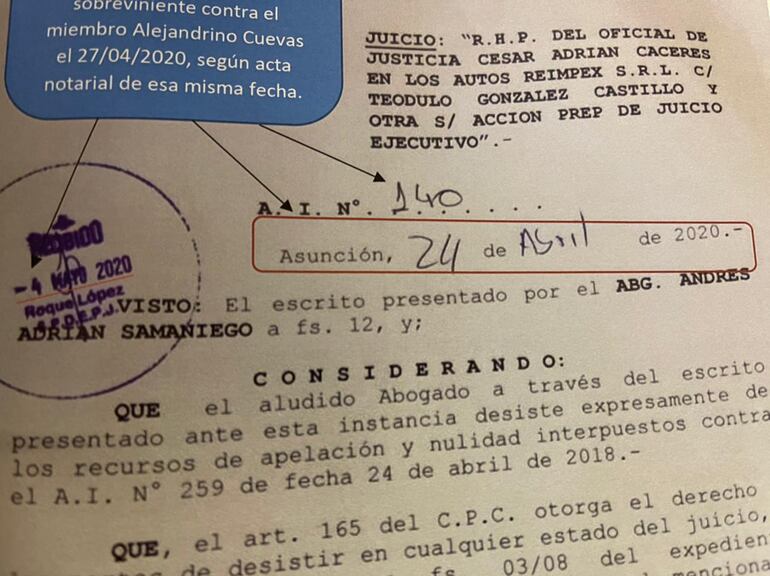 sobreviniente contra el
miembro Alejandrino Cuevas
el 27/04/2020, según acta
notarial de esa misma fecha.
JUICIO: "R.H.P. DEL OFICIAL DE
JUSTICIA CESAR ADRIAN CACERES
EN LOS AUTOS REIMPEX S.R.L. C/
TEODULO GONZALEZ CASTILLO Y
OTRA S/ ACCION PREP DE JUICIO
EJECUTIVO".-
A. I. N°. 140 . . . .
Asunción, 24 de Abril de 2020.-
RECIBIDO
- 4 MAYO 2020
Roque López
VISTO: El escrito presentado por el ABG. ANDRES
ADRIAN SAMANIEGO a fs. 12, y;
C O N S I D E R A N D O:
QUE el aludido Abogado a través del escrito
presentado ante esta instancia desiste expresamente de
los recursos de apelación y nulidad interpuestos contra
el A.I. N° 259 de fecha 24 de abril de 2018.-
QUE, el art. 165 del C.P.C. otorga el derecho
de desistir en cualquier estado del juicio,
fs. 03/08 del expedien
menciona